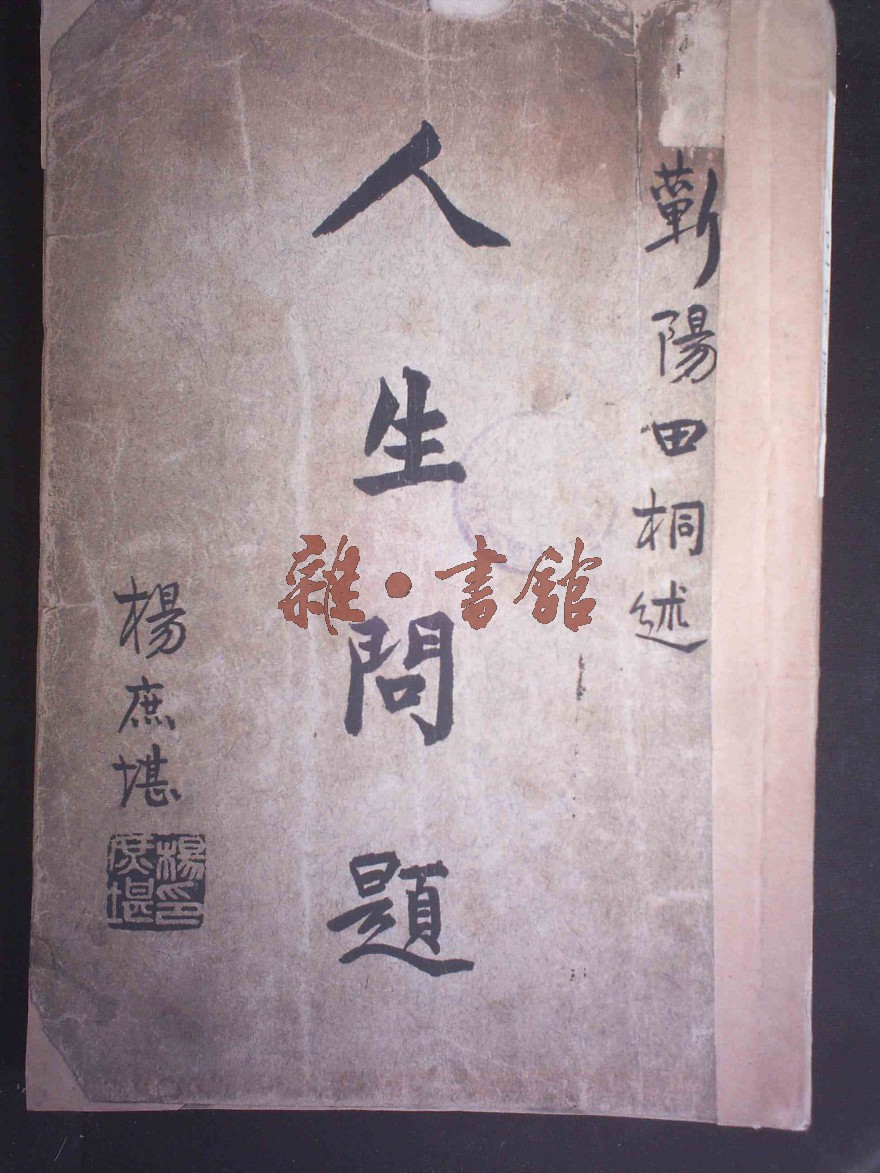 蘄陽田桐述
人生問題
楊庶堪
楊庶堪印
雜·書館